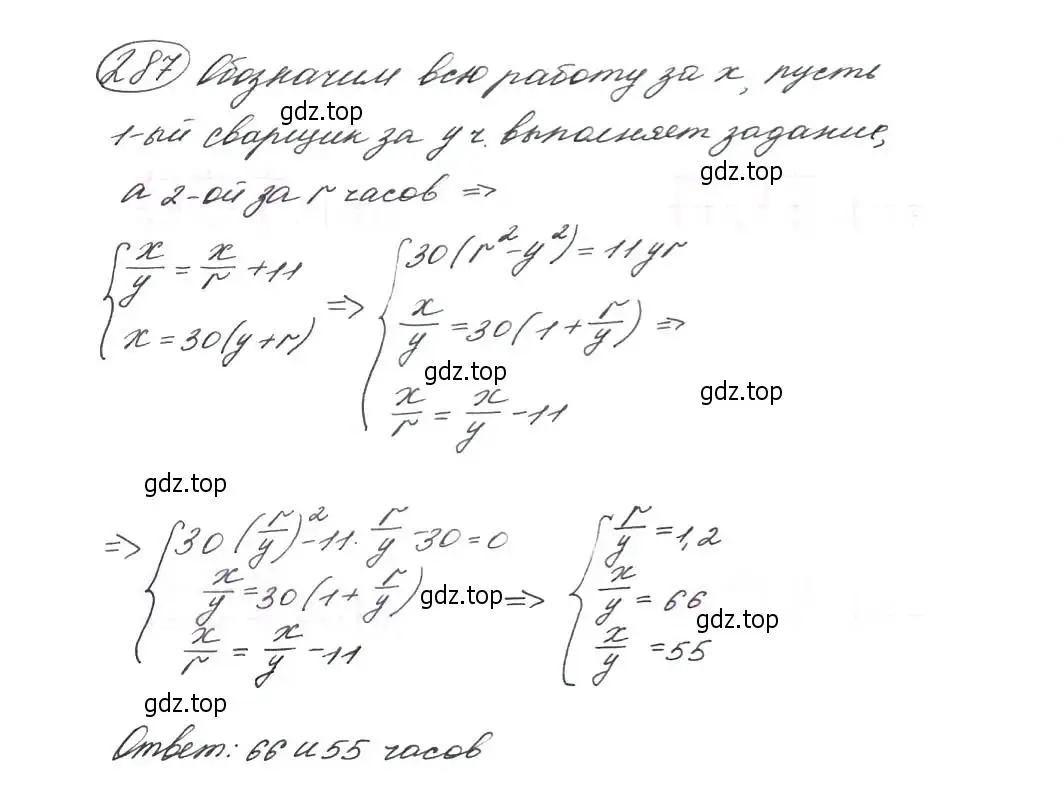 287 Обозначим всю работу за x, пусть
gdz.top
1-ый сварщик за y ч. выполняет задание,
gdz.top
а 2-ой за r часов =>
{ x/y = x/r + 11
x = 30(y+r)
=> { 30(r²-y²) = 11yr
x/y = 30(1 + r/y) =>
gdz.top
gdz.top
x/r = x/y - 11
gdz.top
=> { 30(r/y)² - 11·r/y - 30 = 0
x/y = 30(1 + r/y)
gdz.top
x/r = x/y - 11
=> { r/y = 1,2
x/y = 66
gdz.top
x/y = 55
gdz.top
Ответ: 66 и 55 часов